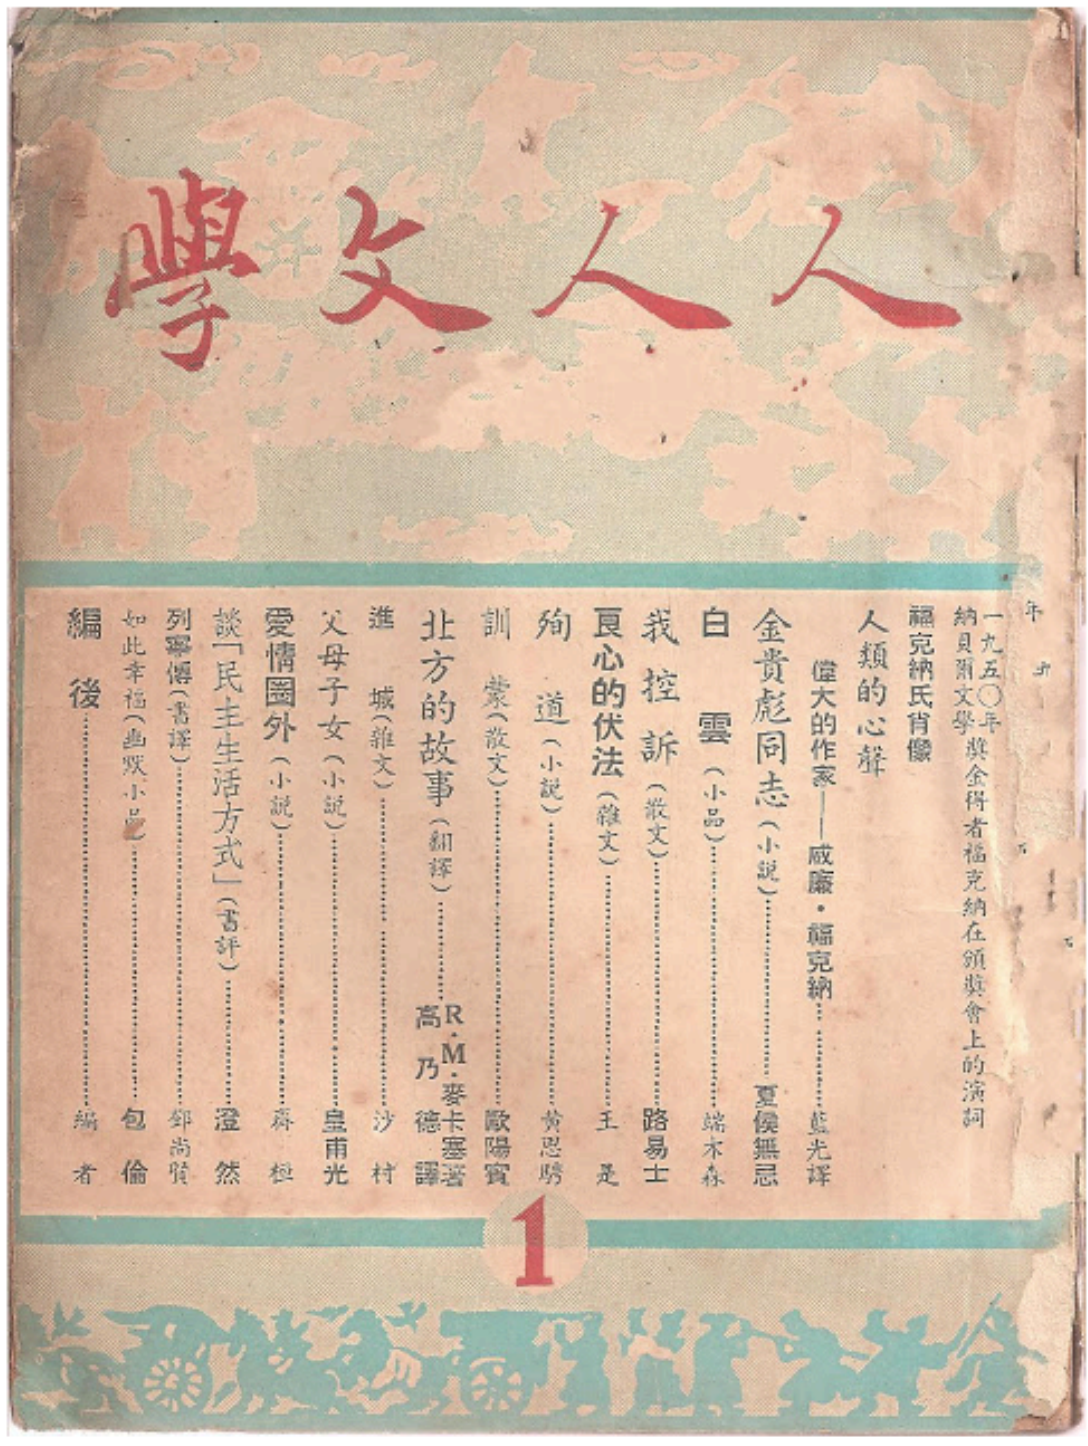 人人文學
一九五〇年
納貝爾文學獎金得者福克納在頒獎會上的演詞
福克納氏肖像
人類的心聲
偉大的作家——威廉·福克納 藍光譯
金貴彪同志(小說) 夏侯無忌
白雲(小品) 端木森
我控訴(散文) 路易士
良心的伏法(雜文) 王是
殉道(小說) 黃思騁
訓蒙(散文) 歐陽賓
北方的故事(翻譯) R·M·麥卡塞著
高乃德譯
進城(雜文) 沙村
父母子女(小說) 皇甫光
愛情圈外(小說) 齊桓
談「民主生活方式」(書評) 澄然
列寧傳(書譯) 鄧尚賢
如此幸福(幽默小品) 包倫
編後 編者
1